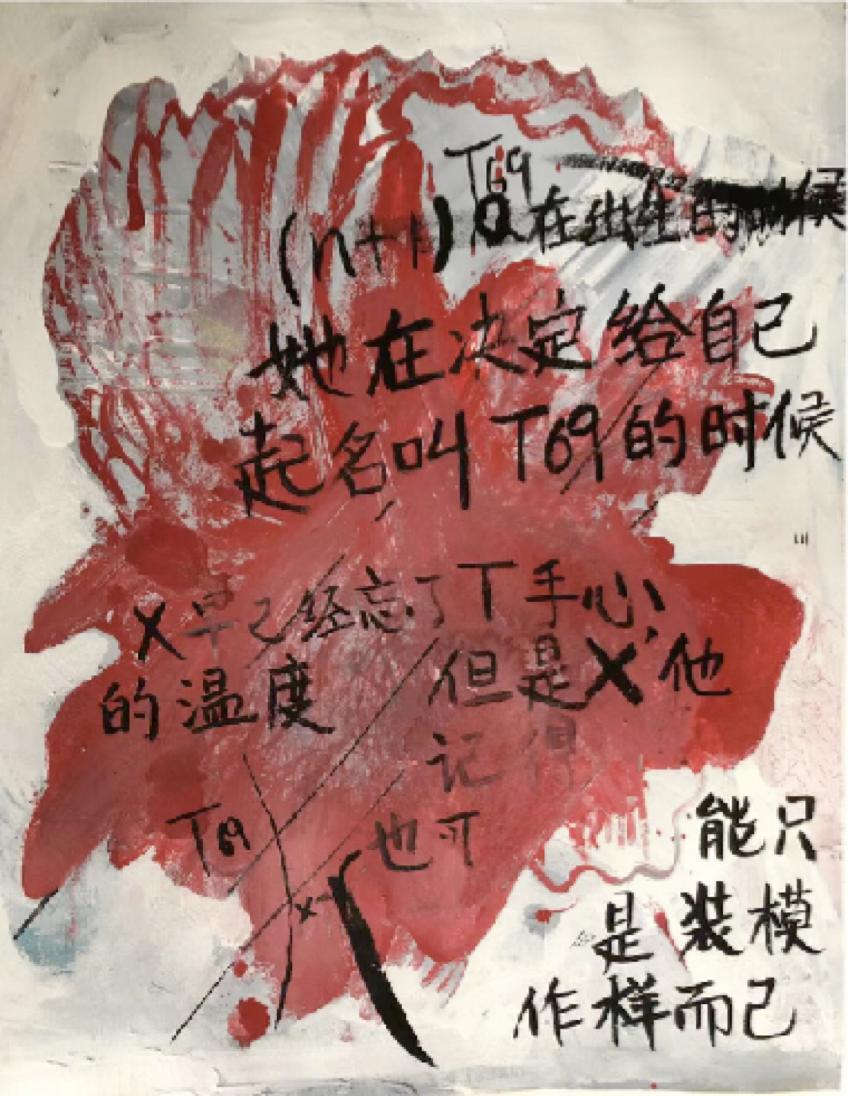 T69
(n+1) Q在出生的时候
她在决定给自己
起名叫T69的时候
X早已经忘了T手心
的温度 但是X 他
记得
T69 也可
能只
x
是装模
作样而已